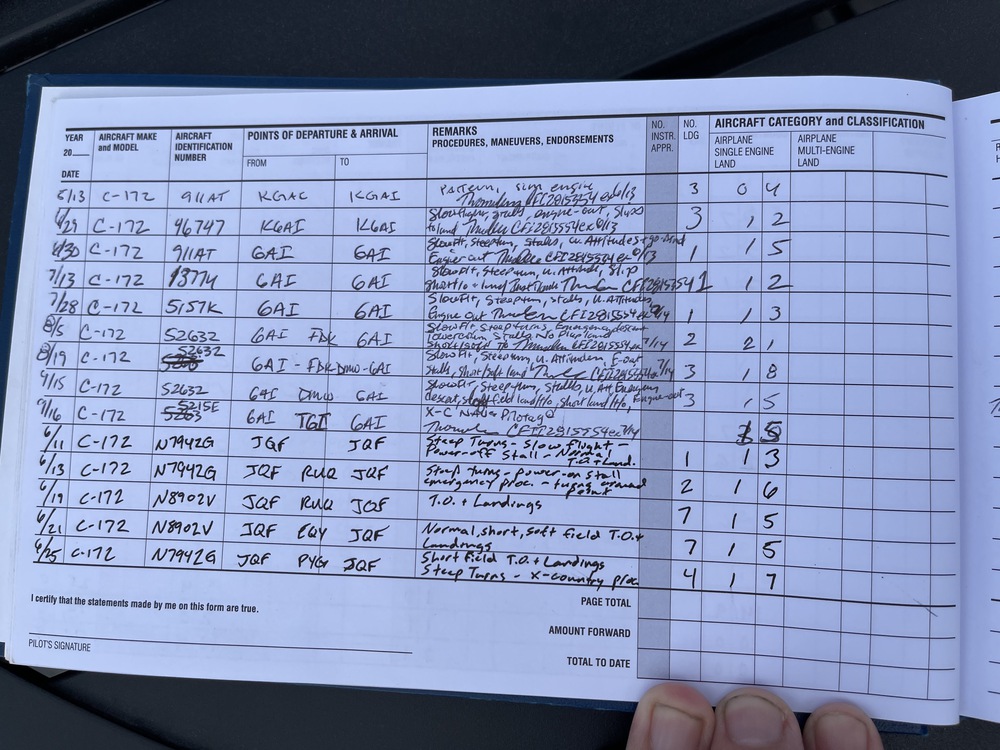 YEAR 20___ DATE AIRCRAFT MAKE and MODEL AIRCRAFT IDENTIFICATION NUMBER POINTS OF DEPARTURE & ARRIVAL FROM TO REMARKS PROCEDURES, MANEUVERS, ENDORSEMENTS NO. INSTR. APPR. NO. LDG AIRCRAFT CATEGORY and CLASSIFICATION AIRPLANE SINGLE ENGINE LAND AIRPLANE MULTI-ENGINE LAND
/13 C-172 911AT KGAI Pattern, sim engine 3 0 4
CFI2815554
/29 C-172 46747 KGAI KGAI Slowflight, stalls, engine-out, slips 3 1 2
to land CFI2815554
/30 C-172 911AT GAI GAI Steepturn, Stalls, u. Attitudes 1 1 5
Engine out CFI2815554
7/13 C-172 GAI GAI Slowflt, Steepturn, u. Attitude, Slip 1 1 2
CFI2815554
7/28 C-172 5157K GAI GAI Slowflt, Steepturn, stalls, U. Attitudes 1 1 3
Engine Out CFI2815554
8/5 C-172 52632 GAI FDK GAI Slowflt, Steepturns, Emergency descent 2 2 1
CFI2815554
8/19 C-172 52632 GAI - FDK-DMW-GAI Slowflt, Steepturn, u. Attitudes, E-out 3 1 8
Stalls, Short/Soft land
9/15 C-172 52632 GAI DMW GAI Slowflt, Steepturn, Stalls, u. Att, Emergency 3 1 5
descent, soft field land/t/o, short land/t/o, Engine-out
9/16 C-172 5215E GAI TGI GAI X-C Pilotage 5
CFI2815554
6/11 C-172 N7942G JQF JQF Steep Turns - Slow flight - 1 1 3
Power-off Stall - Normal T.O. + Land.
6/13 C-172 N7942G JQF RUQ JQF Steep turns - power-on stall 2 1 6
emergency proc. - turns around point
6/19 C-172 N8902V JQF RUQ JQF T.O. + Landings 7 1 5
6/21 C-172 N8902V JQF EQY JQF Normal, short, soft field T.O. + 7 1 5
Landings
6/25 C-172 N7942G JQF PYG JQF Short field T.O. + Landings 4 1 7
Steep Turns - X-country proc.
I certify that the statements made by me on this form are true.
PAGE TOTAL
AMOUNT FORWARD
PILOT'S SIGNATURE
TOTAL TO DATE